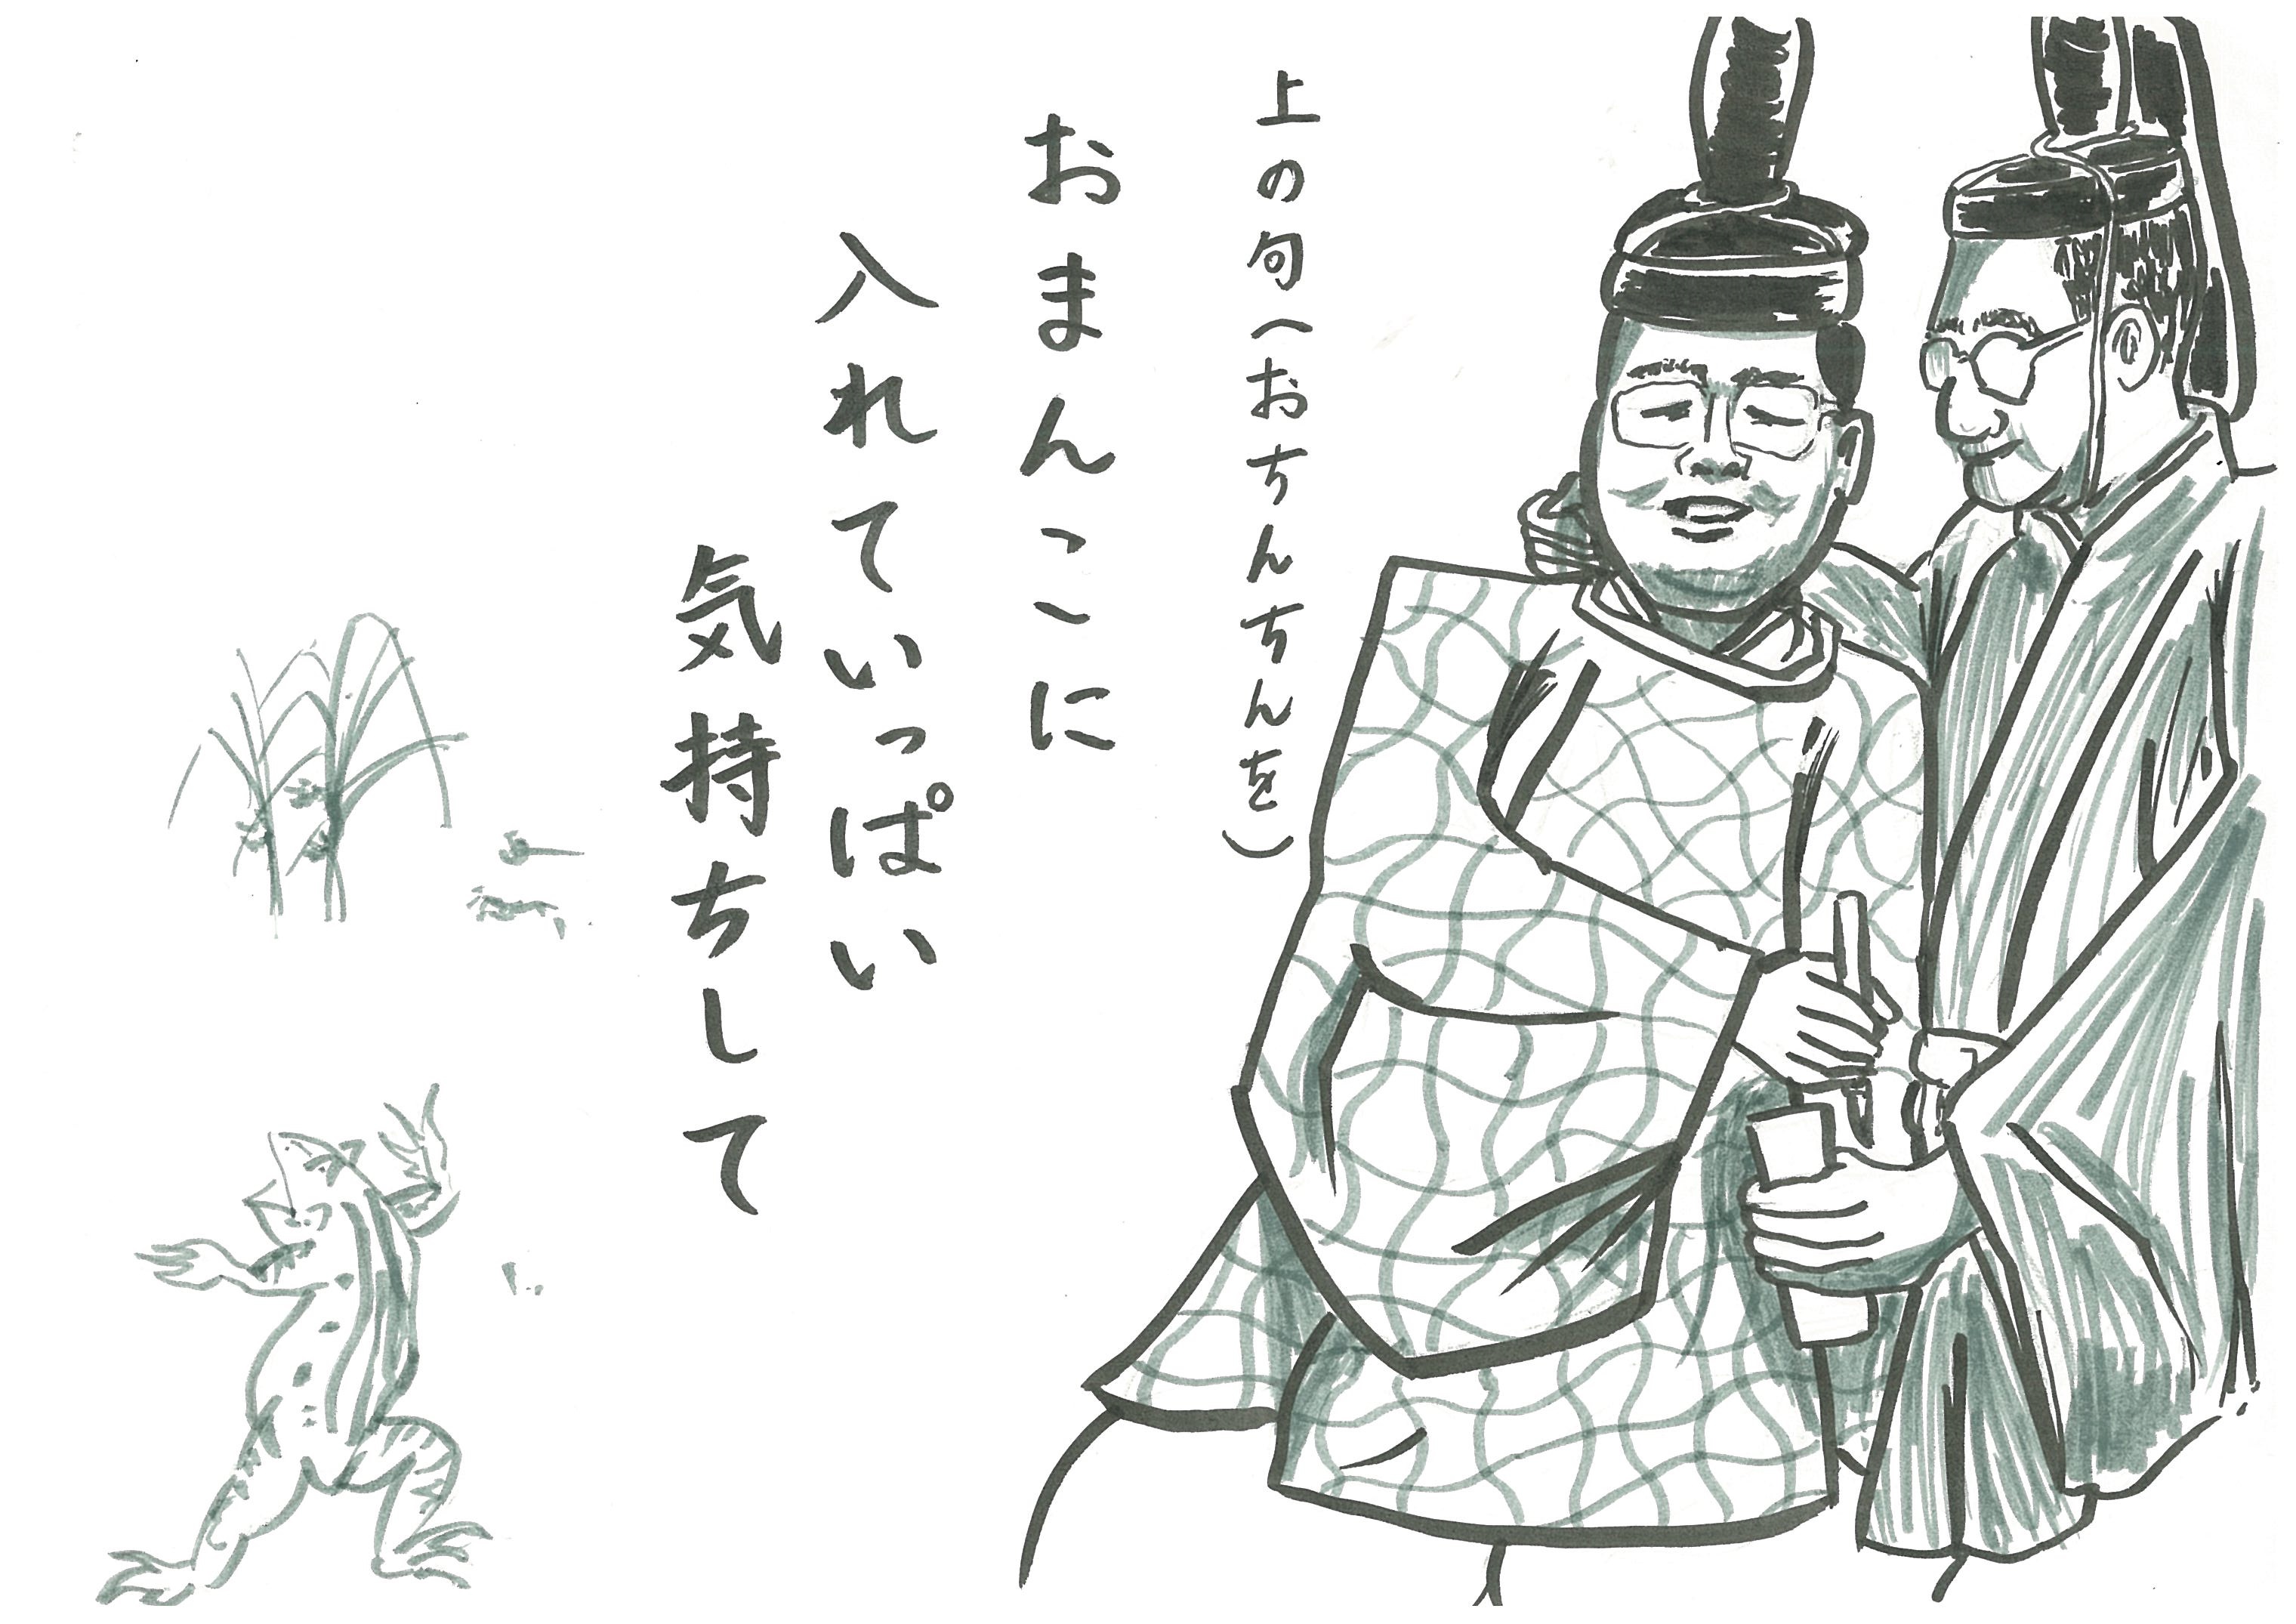 上の句(おちんちんを)
おまんこに
入れていっぱい
気持ちして